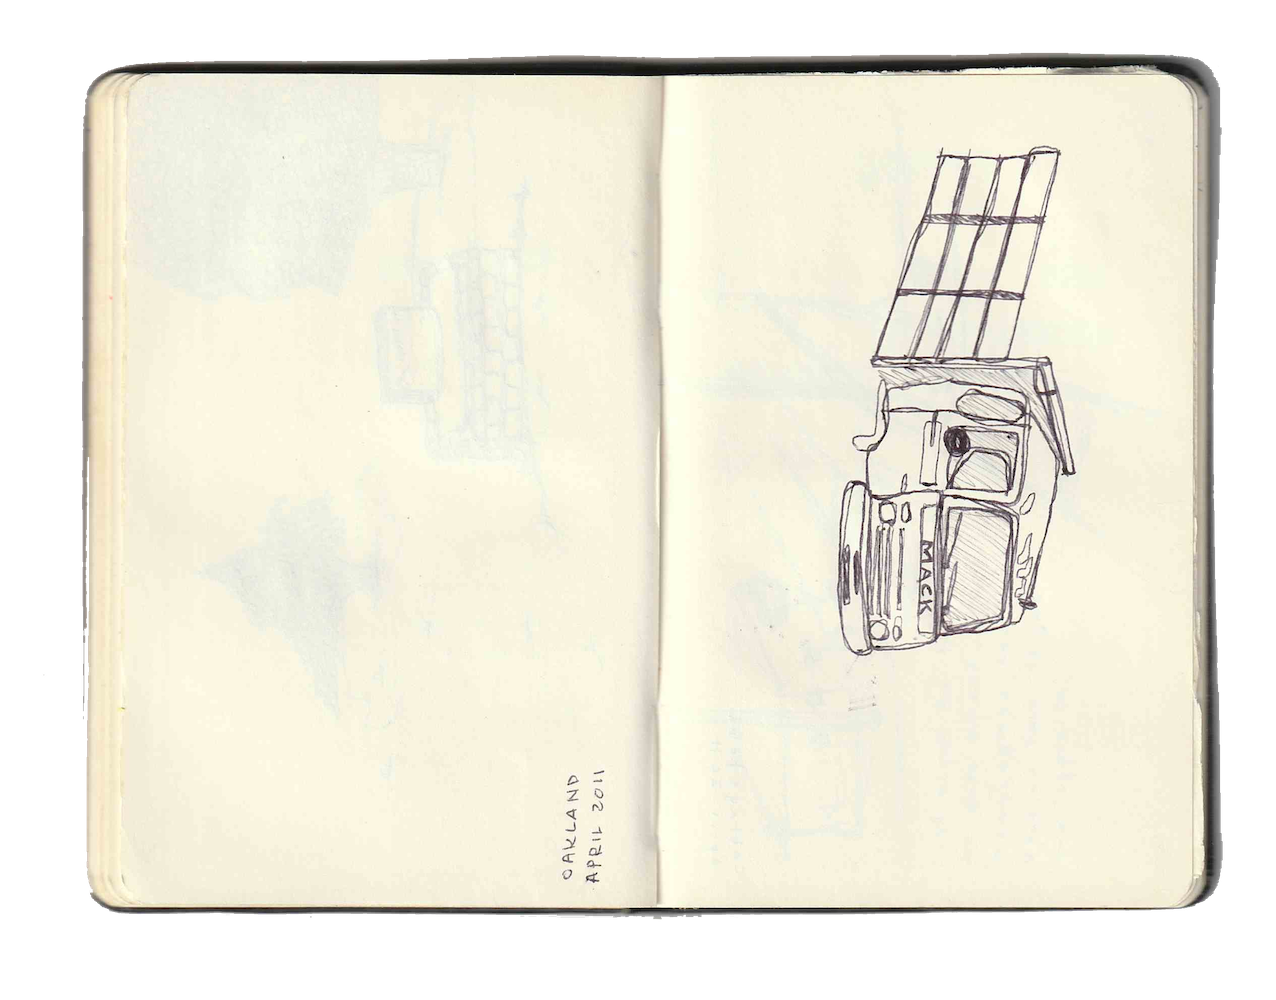 OAKLAND
APRIL 2011
MACK